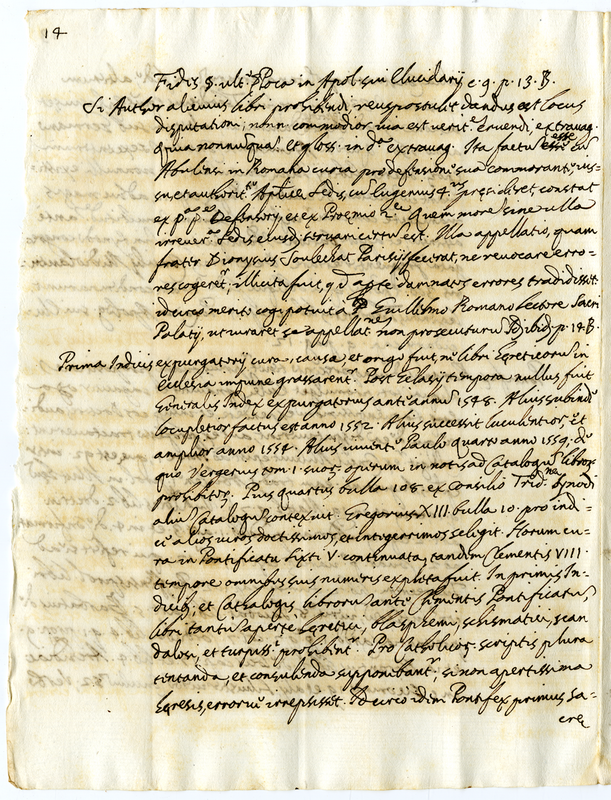 14
Fidis 8. ult. Ploca in Apol. sui Elucidarij c. 9. p. 13. B.
Si Author alicuius libri prohibendi, reus postulet dandus est locus
disputationi, non commodior via est verit.s eruendi, extravag.
quia nonnunqua, et gloss. in d.a extravag. Ita factu esse cu
Abulensi in Romana curia pro defensione sua commorante, ius-
su, et authorit.e Aplicę Sedis, cu Eugenius 4.us pręsideret constat
ex p.a p.e Defensorij, et ex Proęmio Quem more sine ulla
irrever.a Sedis eiusd. servari certu est. Illa appellatio, quam
frater Dionysius Soulechat Parisijs fecerat, ne revocare erro-
res cogeret, illicita fuit, q.d apte damnatos errores tradidisset
idcirco merito cogi potuit a Guillelmo Romano Lectore Sacri
Palatij, ut iuraret se appellat.ne non prosecuturu Id. ibid. p. 14. B.
Prima Indicis expurgatorij cura, causa, et origo fuit, ne libri Hęreticoru in
Ecclesia impune grassarent. Post Gelasij tempora nullus fuit
Generalis Index expurgatorius ante annu 1548. Alius subinde
locupletior factus est anno 1552. Alius successit luculentior, et
amplior anno 1554. Alius iuvente Paulo quarto anno 1559. de
quo Vergerius tom. 1. suor. operum in notis ad Catalogu libror.
prohibitor. Pius quartus bulla 108. ex Consilio Trid.ne
aliu Catalogu contexuit. Gregorius XIII. bulla 10. pro indi-
ce alios viros doctissimos, et integerrimos selegit. Horum cu-
ra in Pontificatu Sixti V. continuata, tandem Clementis VIII.
tempore omnibus suis numeris expleta fuit. In primis In-
dicib. et Catalogis libroru ante Clementis Pontificatu,
libri tantu aperte hęretici, blasphemi, schismatici, scan
dalosi, et turpiss. prohibent. Pro Catholicor. scriptis plura
tentanda, et consulenda supponebant, si non apertissima
hęresis, erroru irrepsisset. Idcirco idem Pontifex primus sa-
crę